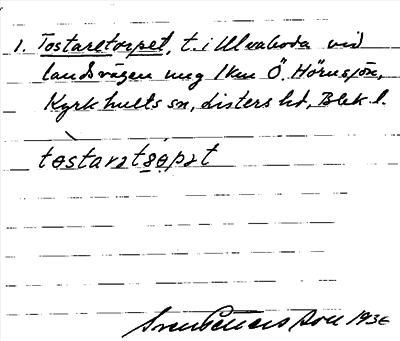 1. Tostaretorpet, t. i Ulvaboda vid
landsvägen ung 1 km Ö. Hörnsjön,
Kyrkhults sn, Listers hd, Blek. l.
tɵstarətsɵpət
Sven Benson 1936